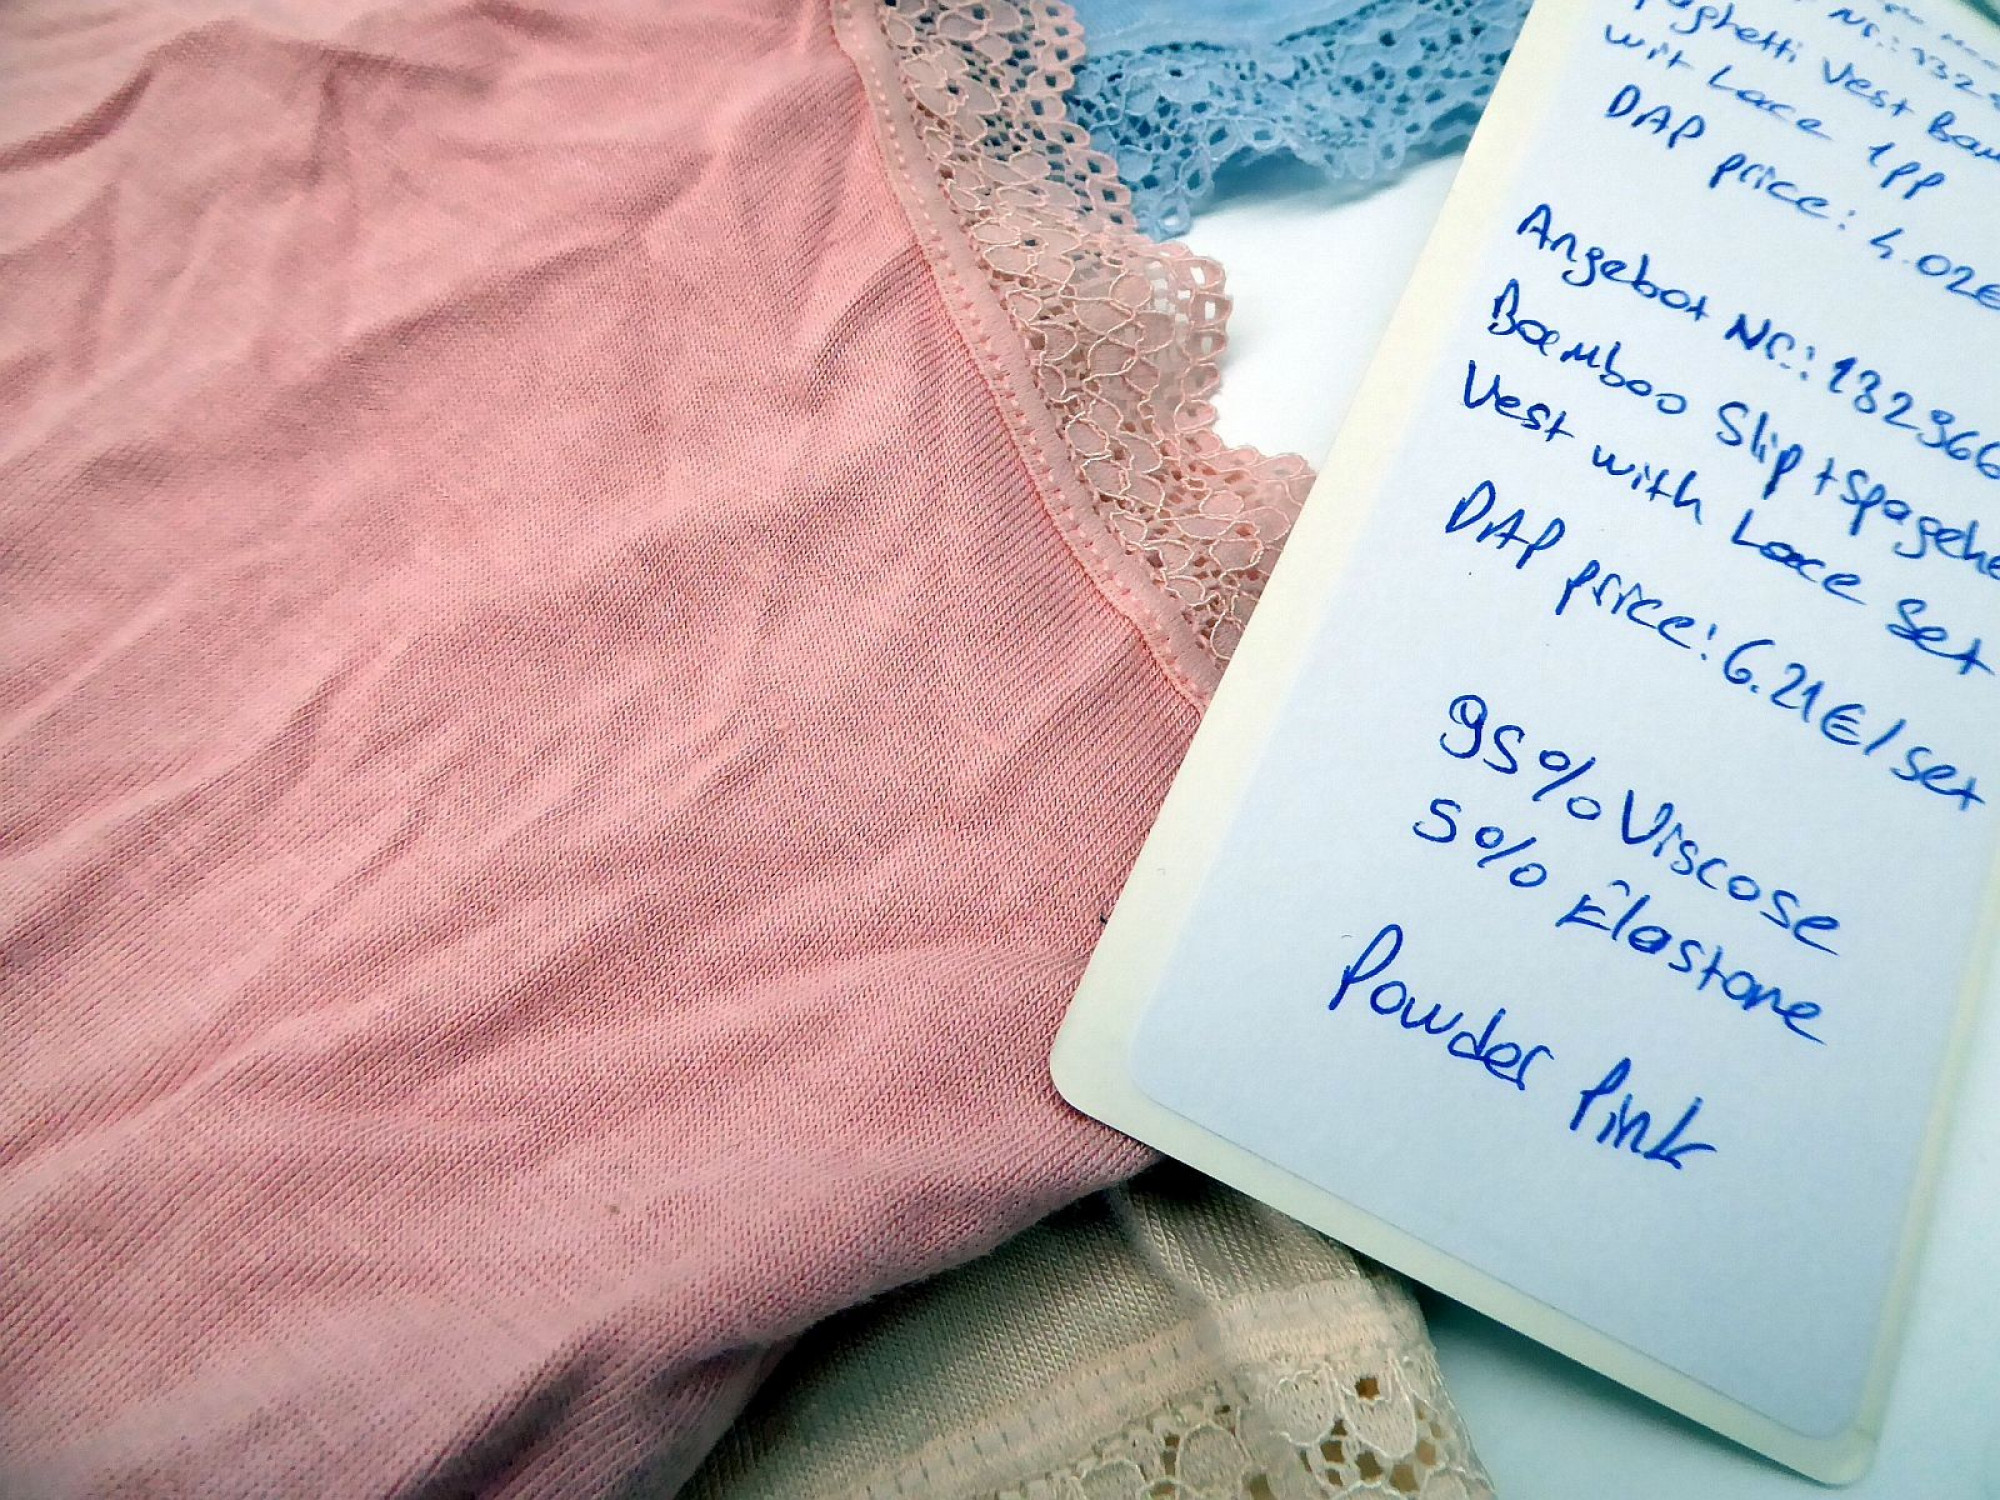 Nr.: 132
Spaghetti Vest Bam
wit Lace 1PP
DAP price: 4.02€
Angebot Nr.: 132366
Bambus Slip + Spagehe
Vest with Lace Set
DAP price: 6.21€/set
95% Viscose
5% Elastane
Powder Pink